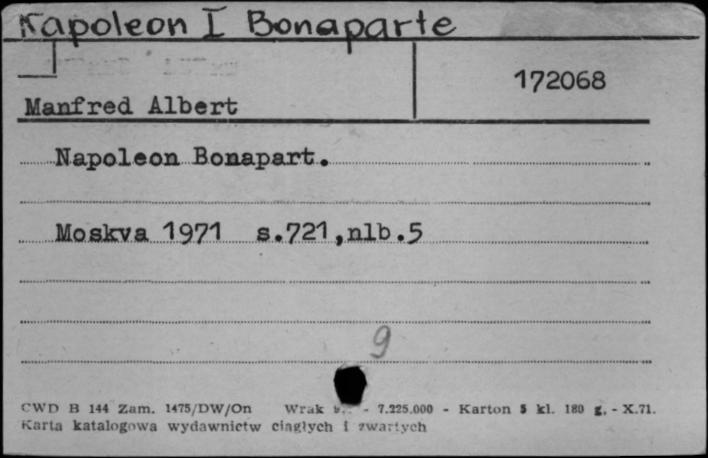 Napoleon I Bonaparte
172068
Manfred Albert
Napoleon Bonapart.
Moskva 1971 s.721,nlb.5
9
CWD B 144 Zam. 1475/DW/On Wrak - 7.225.000 - Karton 5 kl. 180 g. - X.71.
Karta katalogowa wydawnictw ciągłych i zwartych